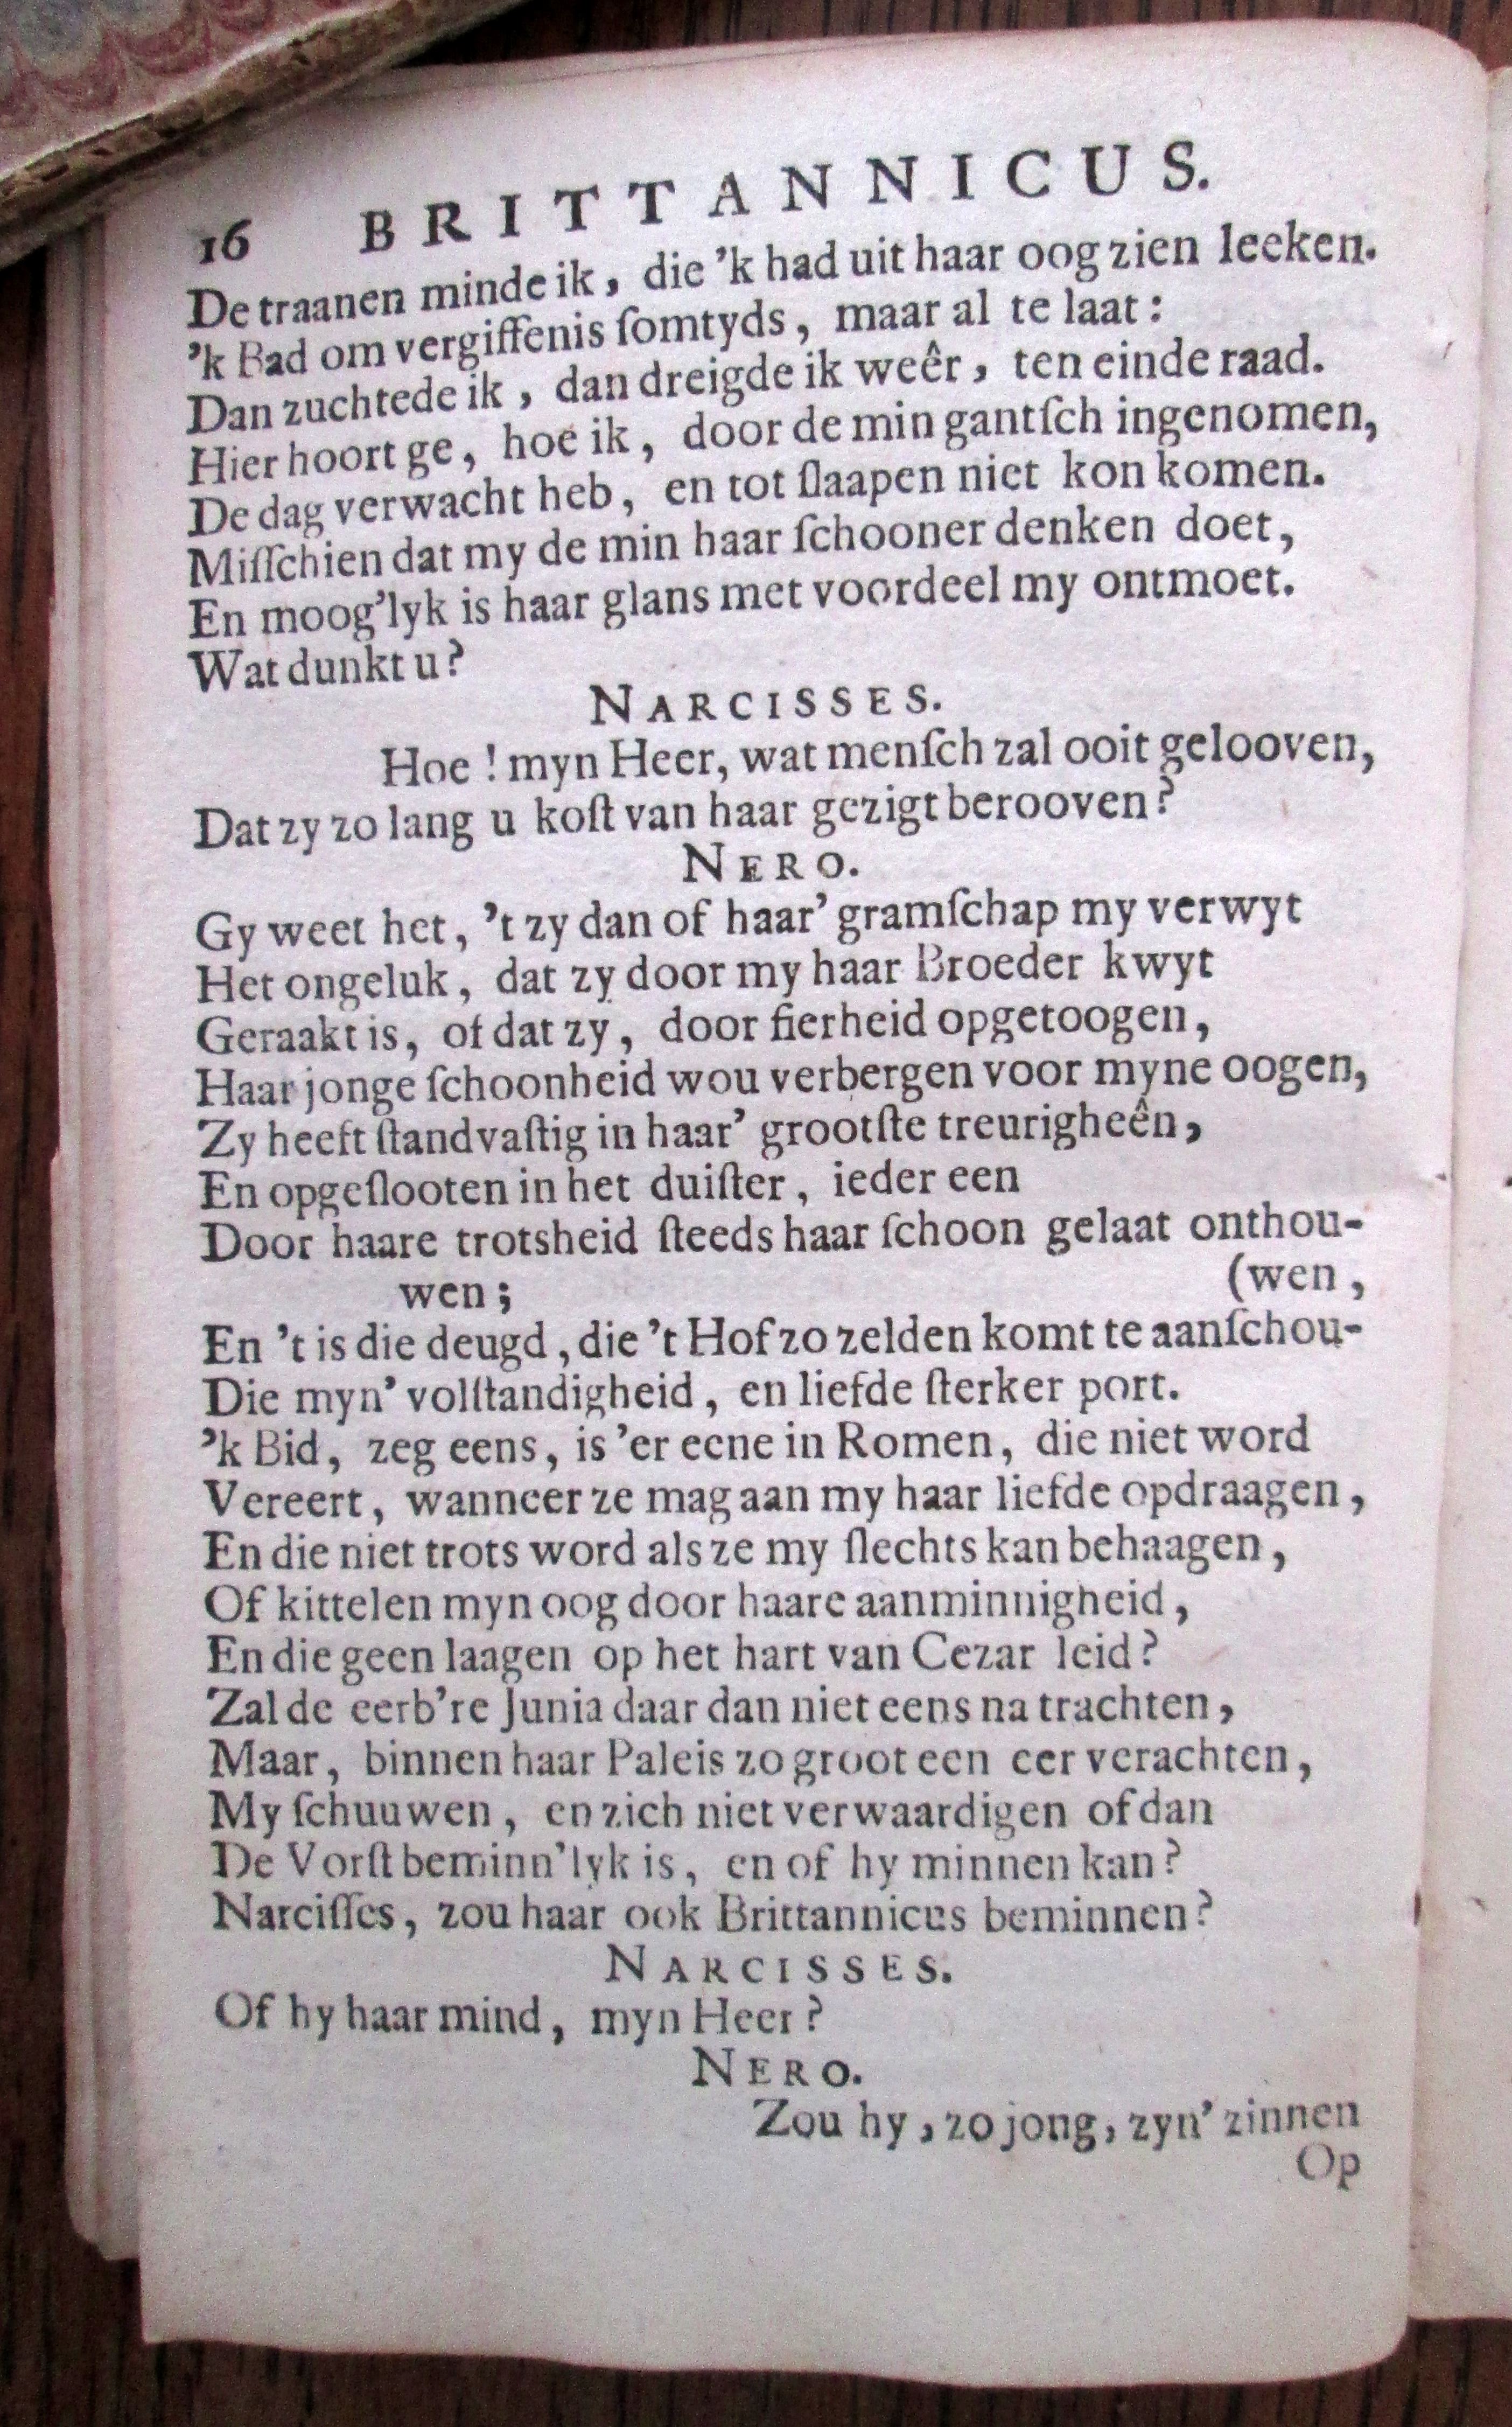 16 BRITTANNICUS.
De traanen minde ik, die 'k had uit haar oog zien leeken.
'k Bad om vergiffenis ſomtyds, maar al te laat:
Dan zuchtede ik, dan dreigde ik weêr, ten einde raad.
Hier hoort ge, hoe ik, door de min gantſch ingenomen,
De dag verwacht heb, en tot ſlaapen niet kon komen.
Miſſchien dat my de min haar ſchooner denken doet,
En moog'lyk is haar glans met voordeel my ontmoet.
Wat dunkt u?
NARCISSES.
Hoe! myn Heer, wat menſch zal ooit gelooven,
Dat zy zo lang u koſt van haar gezigt berooven?
NERO.
Gy weet het, 't zy dan of haar' gramſchap my verwyt
Het ongeluk, dat zy door my haar Broeder kwyt
Geraakt is, of dat zy, door fierheid opgetoogen,
Haar jonge ſchoonheid wou verbergen voor myne oogen,
Zy heeft ſtandvaſtig in haar' grootſte treurigheên,
En opgeſlooten in het duiſter, ieder een
Door haare trotsheid ſteeds haar ſchoon gelaat onthou-
wen; (wen,
En 't is die deugd, die 't Hof zo zelden komt te aanſchou-
Die myn' volſtandigheid, en liefde ſterker port.
'k Bid, zeg eens, is 'er eene in Romen, die niet word
Vereert, wanneer ze mag aan my haar liefde opdraagen,
En die niet trots word als ze my ſlechts kan behaagen,
Of kittelen myn oog door haare aanminnigheid,
En die geen laagen op het hart van Cezar leid?
Zal de eerb're Junia daar dan niet eens na trachten,
Maar, binnen haar Paleis zo groot een eer verachten,
My ſchuuwen, en zich niet verwaardigen of dan
De Vorſt beminn'lyk is, en of hy minnen kan?
Narciſſes, zou haar ook Brittannicus beminnen?
NARCISSES.
Of hy haar mind, myn Heer?
NERO.
Zou hy, zo jong, zyn' zinnen
Op